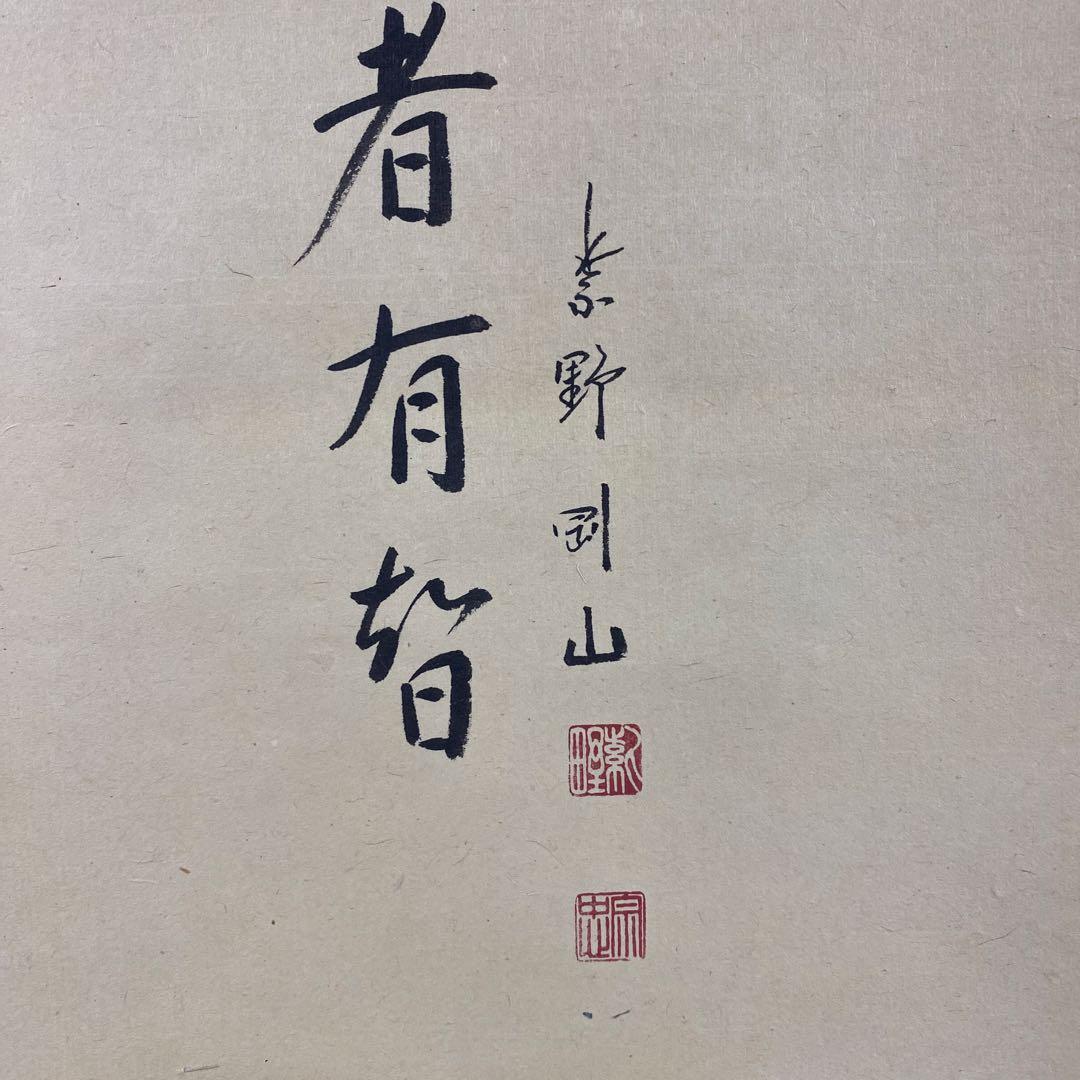 者有智
紫野剛山